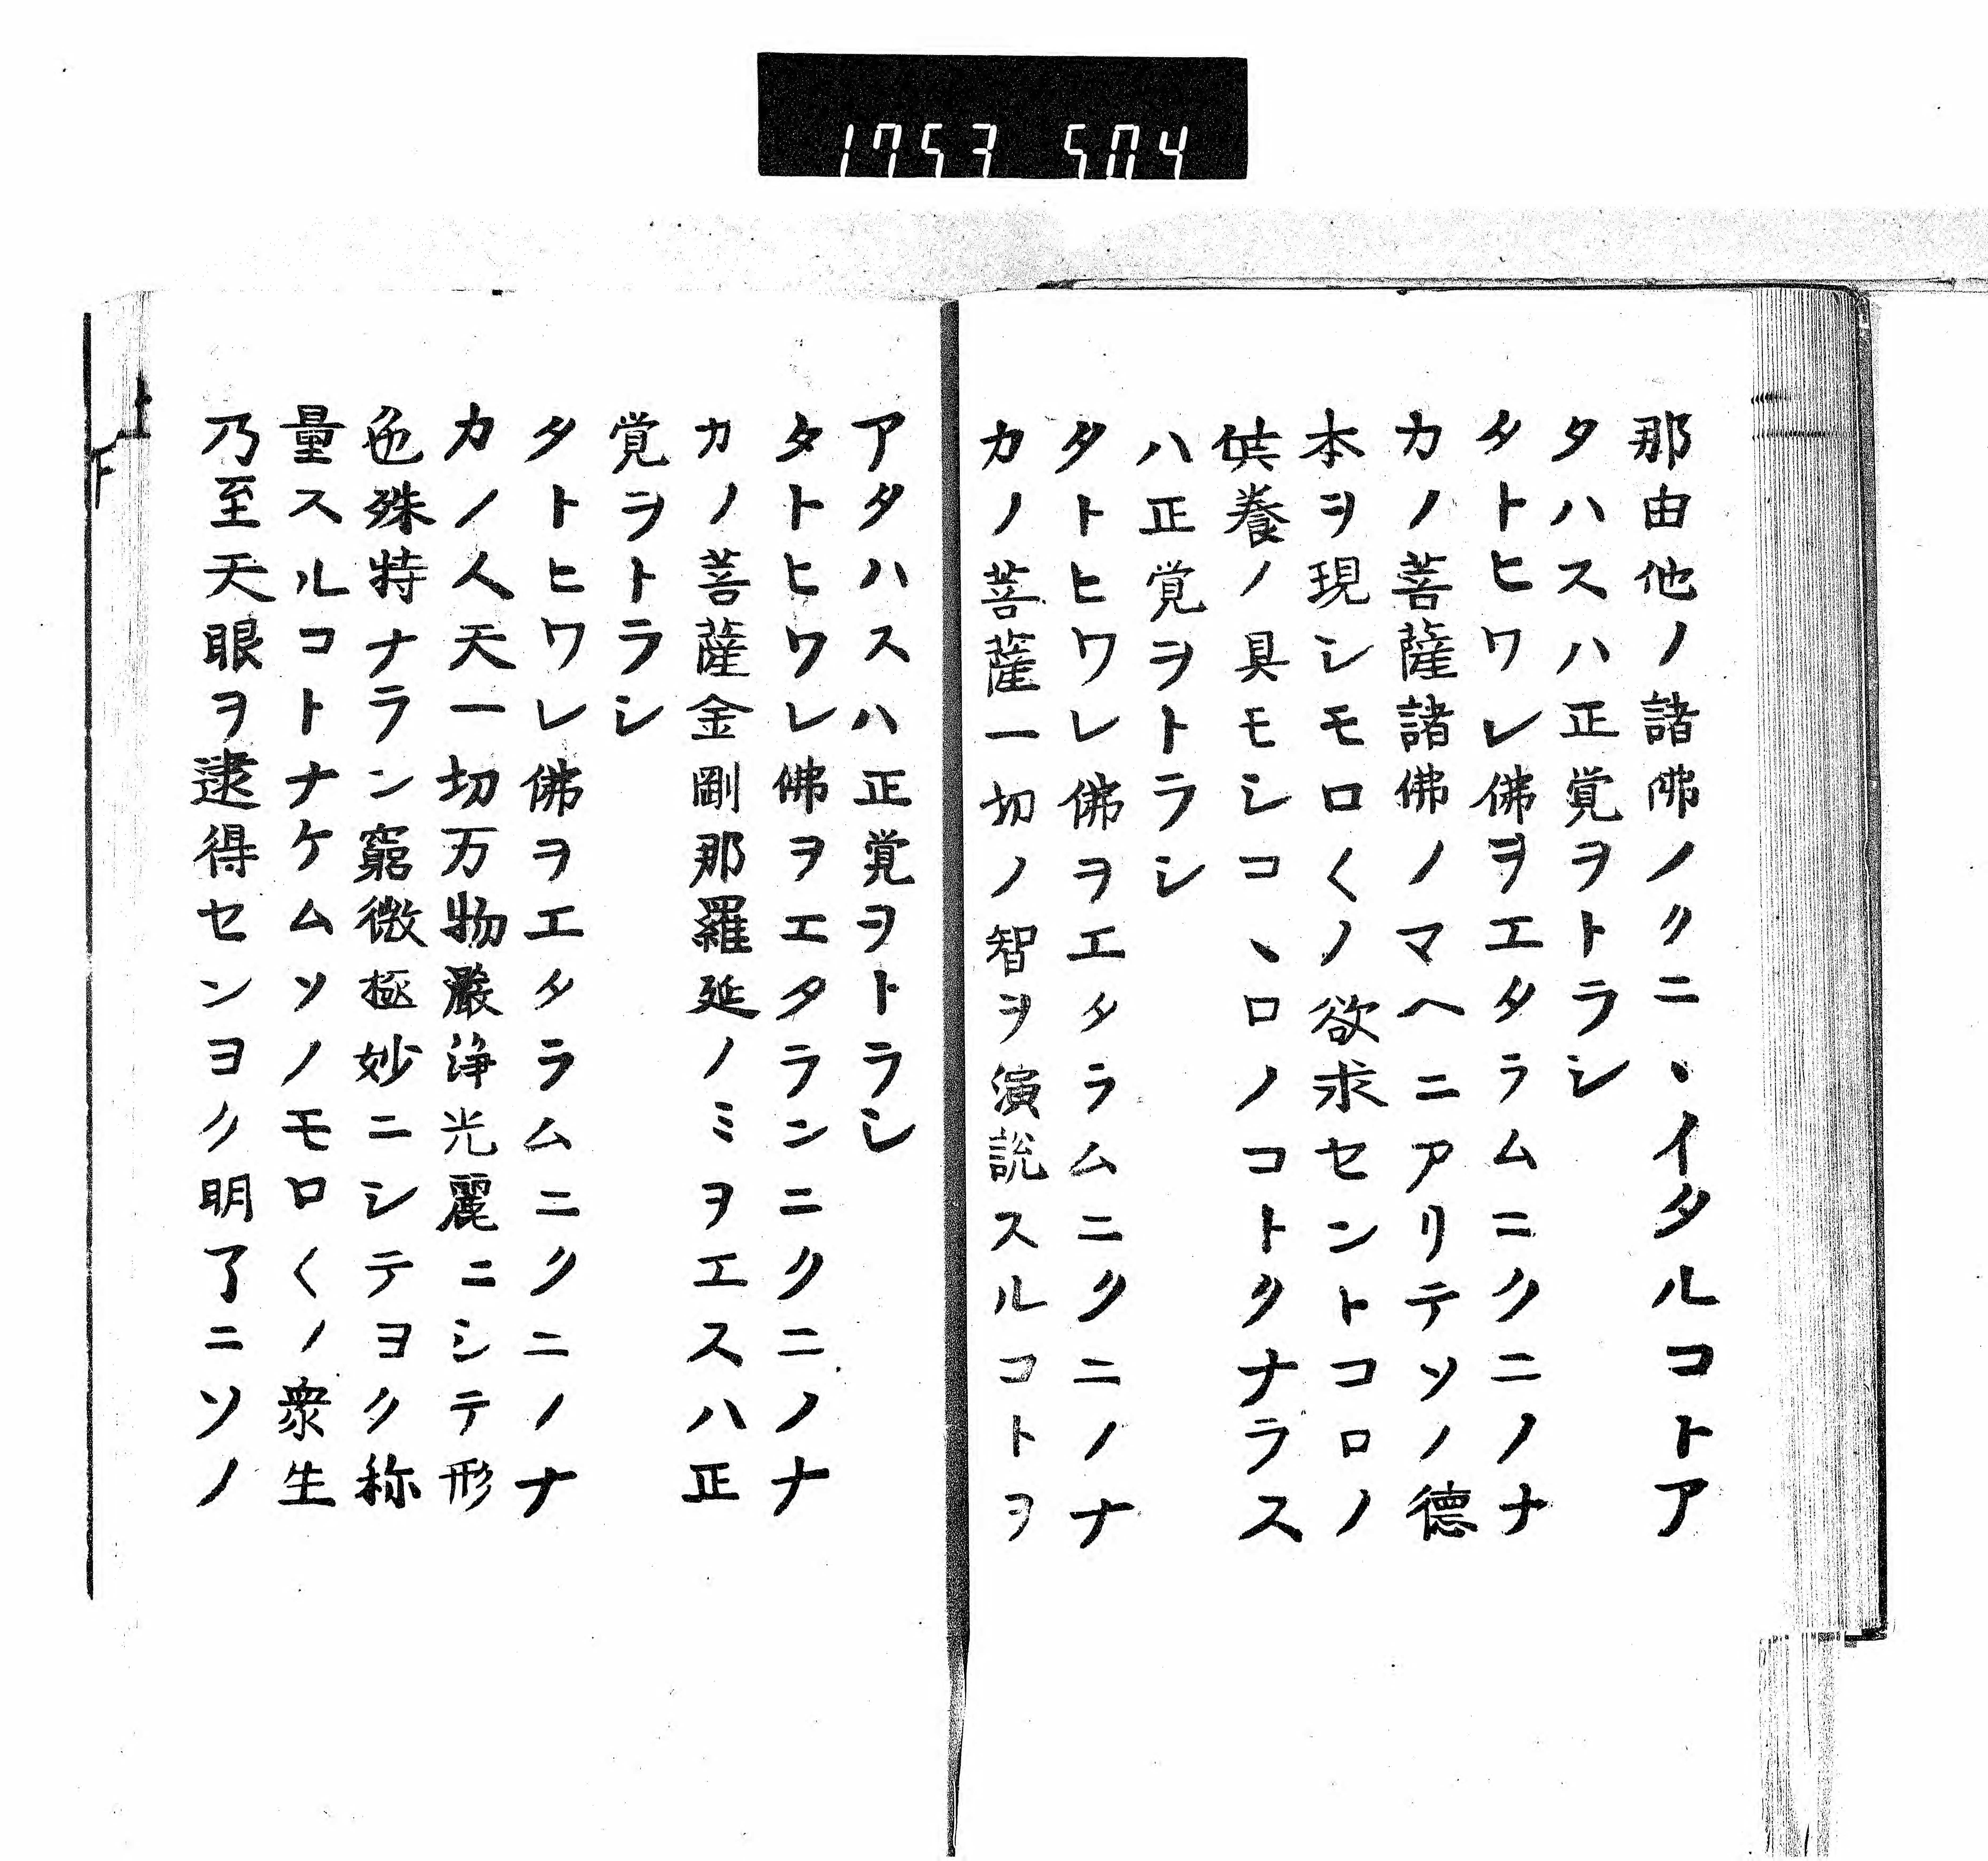 1753 504
那由他ノ諸佛ノクニヽイタルコトア
タハスハ正覚ヲトラシ
タトヒワレ佛ヲエタラムニクニノナ
カノ菩薩諸佛ノマヘニアリテソノ德
本ヲ現シモロ〱ノ欲求セントコロノ
供養ノ具モシコヽロノコトクナラス
ハ正覚ヲトラシ
タトヒワレ佛ヲエタラムニクニノナ
カノ菩薩一切ノ智ヲ演説スルコトヲ
アタハスハ正覚ヲトラシ
タトヒワレ佛ヲエタランニクニノナ
カノ菩薩金剛那羅延ノミヲエスハ正
覚ヲトラシ
タトヒワレ佛ヲエタラムニクニノナ
カノ人天一切万物嚴淨光麗ニシテ形
色殊特ナラン窮微極妙ニシテヨク称
量スルコトナケムソノモロ〱ノ衆生
乃至天眼ヲ逮得センヨク明了ニソノ
上
下